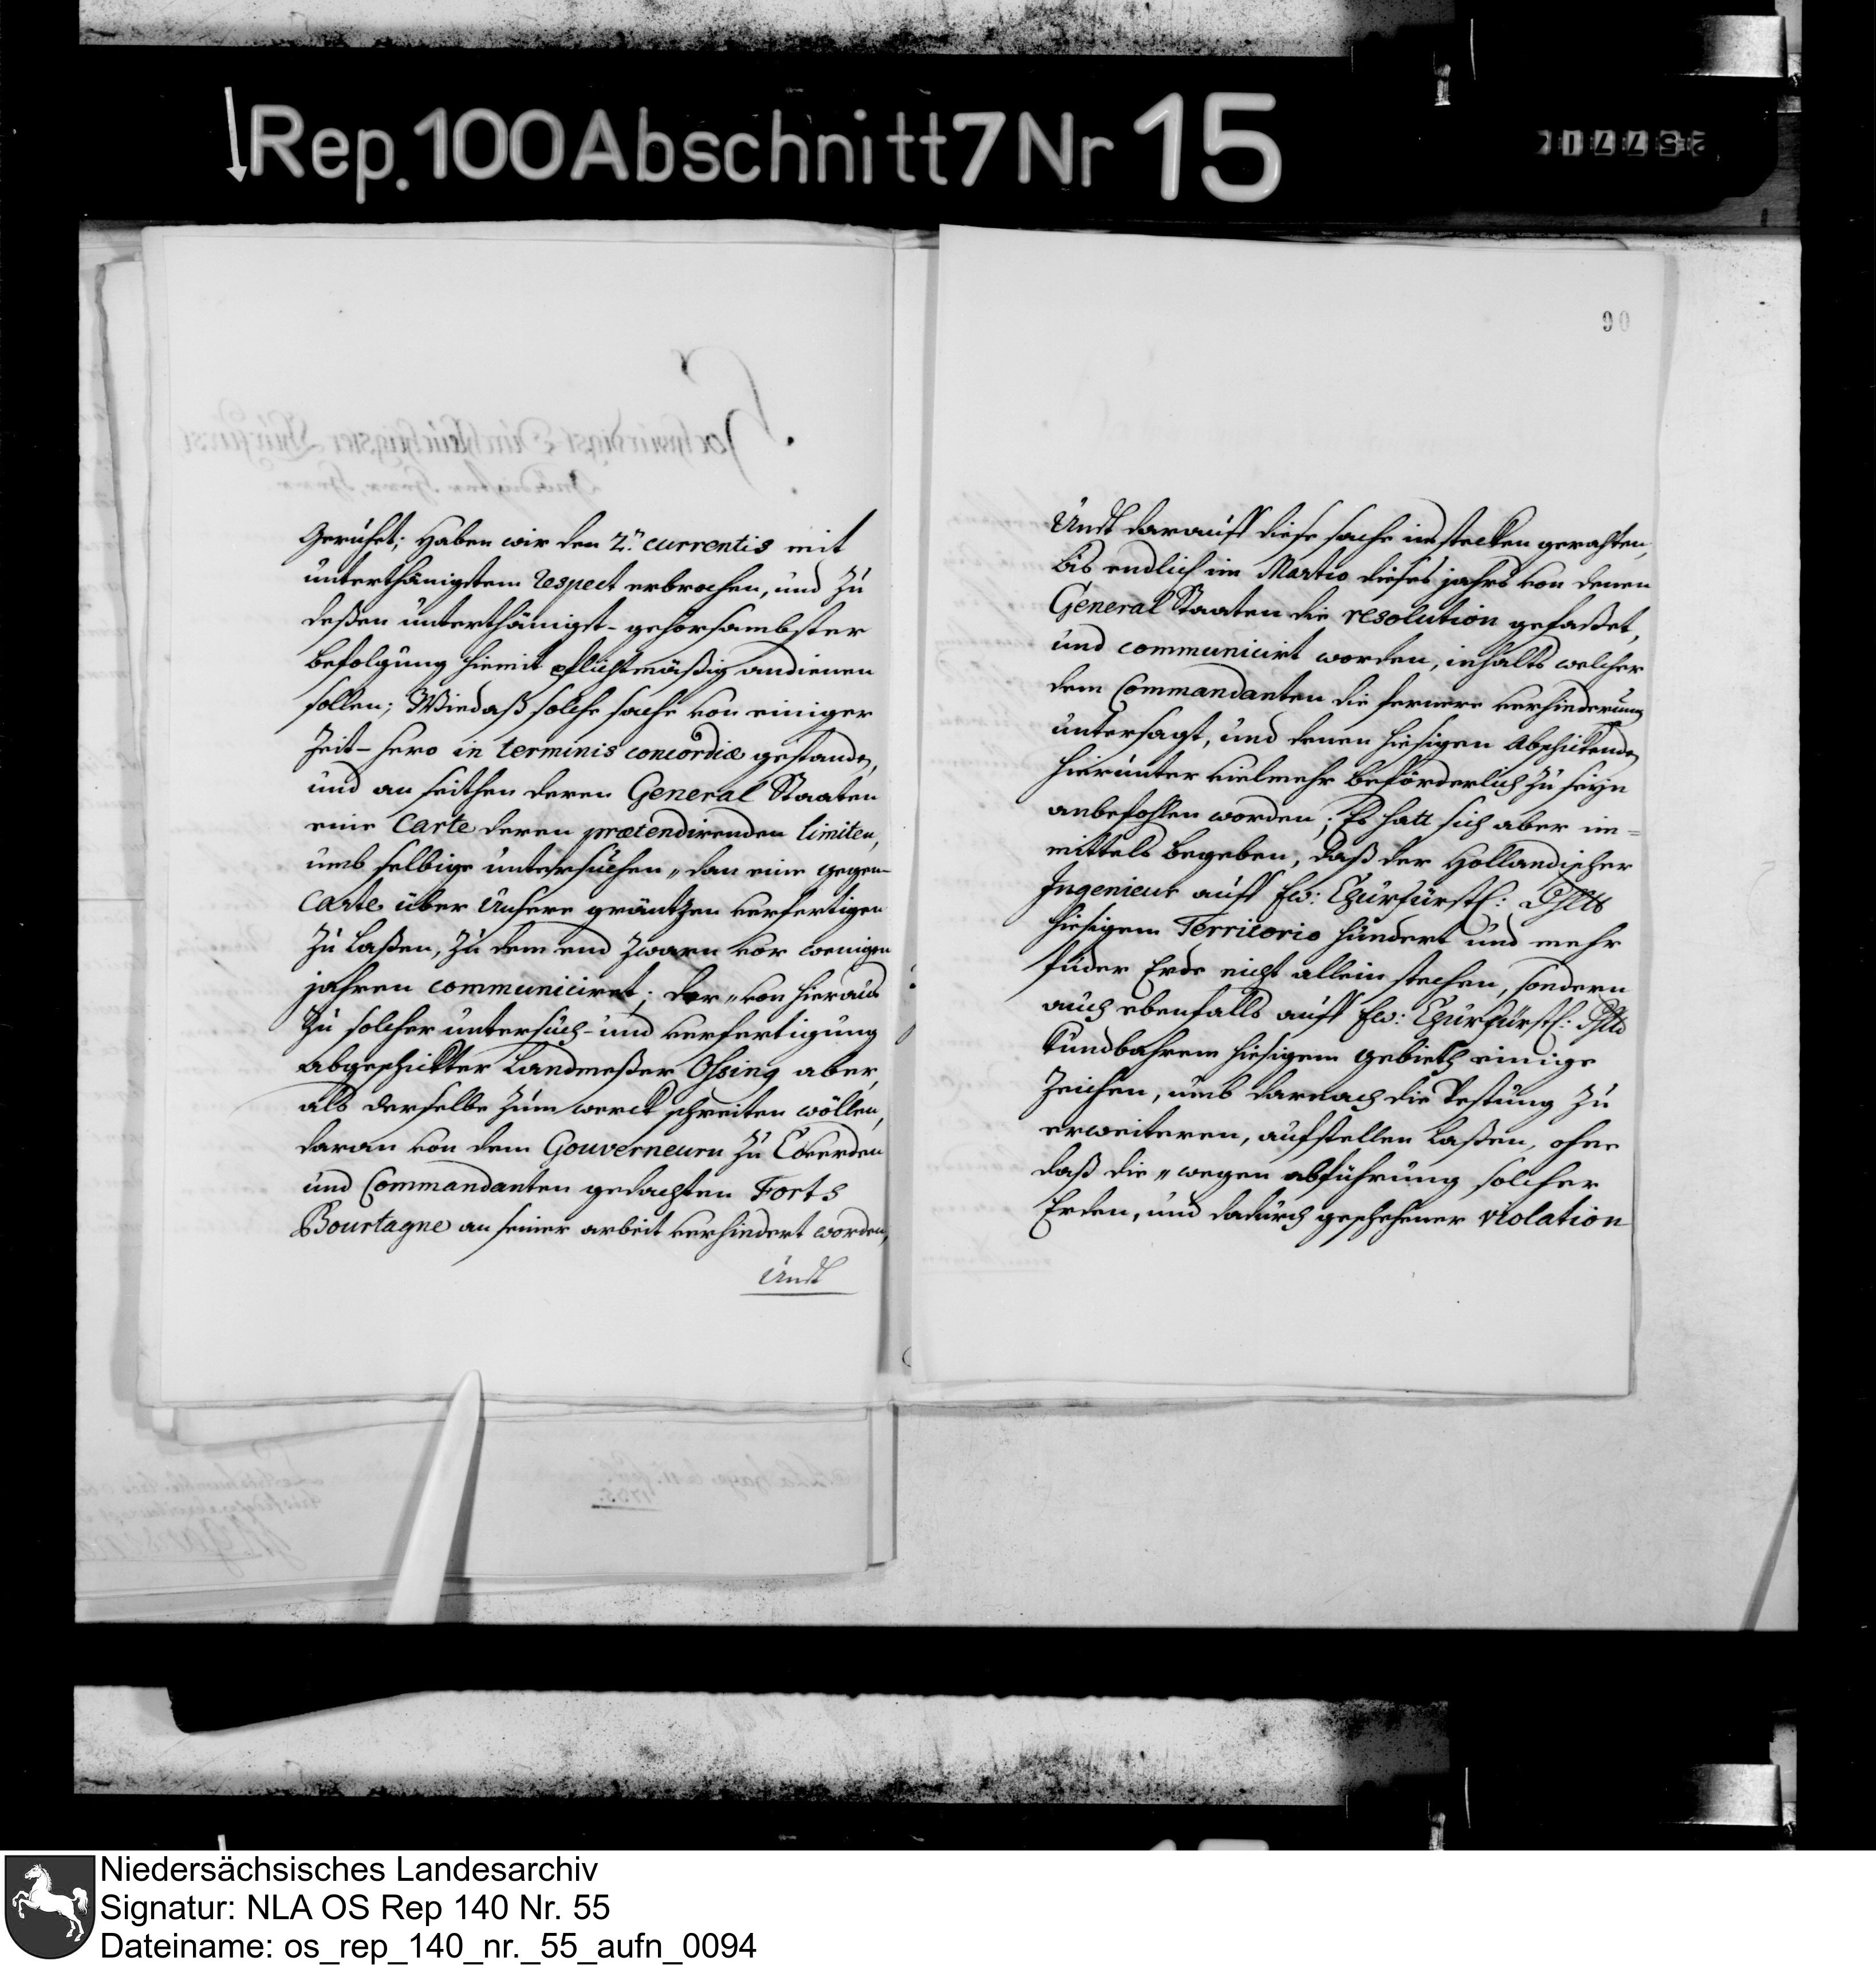 Rep. 100 Abschnitt 7 Nr 15
gerühet; Haben wir den 2ten currentis mit
unterthänigstem respect erbrochen, und zu
deßen unterthänigst-gehorsambster
befolgung hiemit pflichtmäßig andienen
sollen; Wiedaß solche sache von einiger
Zeit-hero in terminis concordiæ gestanden,
und an seithen deren General Staaten
eine Carte deren prætendirenden limiten,
umb selbige untersuchen „ dan eine gegen-
Carte über Unsere gräntzen verfertigen
zu laßen, zu dem end zwarn vor wenigen
jahren communiciret; der „ von hieraus
zu solcher untersuch- und verfertigung
abgeschickter Landmeßer Ossing aber,
als derselbe zum werck schreiten wöllen,
daran von dem Gouverneurn zu Coverden
und Commandanten gedachten Forts
Bourtagne an seiner arbeit verhindert worden,
Undt
90
Undt darauff diese sache ins stecken gerahten,
bis endlich im Martio dieses jahrs von denen
General Staaten die resolution gefaßet,
und communicirt worden, inhalts welcher
dem Commandanten die fernere verhinderung
untersagt, und denen hiesigen Abschickenden
hierunter vielmehr beförderlich zu seyn
anbefohlen worden; Es hatt sich aber im=
mittels begeben, daß der Hollandischer
Ingenieur auff Ew: Churfürstl: Dhltt
hiesigem Territorio hundert und mehr
fuder Erde nicht allein stechen, sondern
auch ebenfalls auff Ew: Churfürstl: Dhltt
kundbahrem hiesigem gebieth einige
Zeichen, umb darnach die Vestung zu
erweiteren, aufstellen laßen, ohne
daß die „ wegen abführung solcher
Erden, und dadurch geschehener violation
Niedersächsisches Landesarchiv
Signatur: NLA OS Rep 140 Nr. 55
Dateiname: os_rep_140_nr._55_aufn_0094